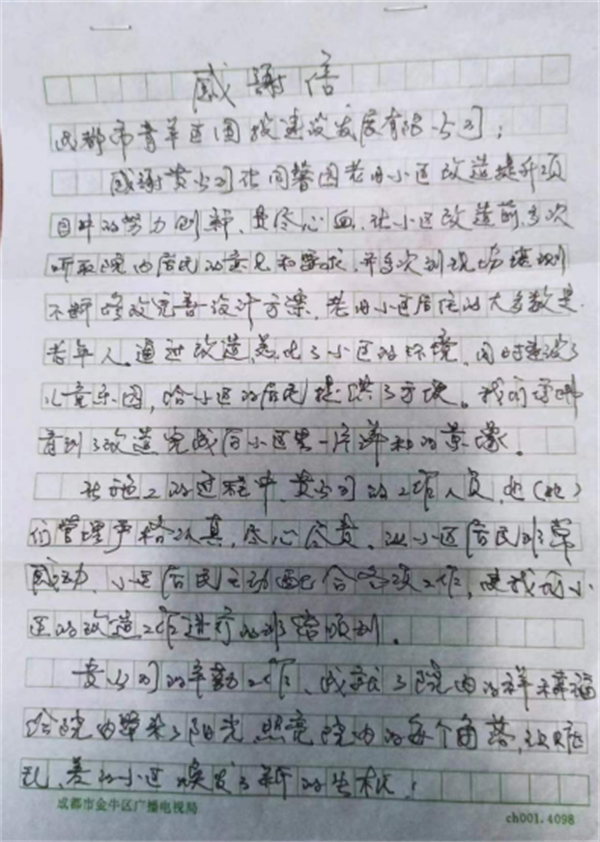 感谢信
成都市青羊区国投建设发展有限公司:
感谢贵公司在同馨园老旧小区改造提升项
目中的努力创新、费尽心血,在小区改造前,多次
听取院内居民的意见和要求,并多次到现场
不断修改完善设计方案。老旧小区居住的大多数是
老年人。通过改造,美化了小区的环境,同时建设了
儿童乐园,给小区的居民提供了方便。我们
看到了改造完成后小区里一片祥和的景象。
在施工的过程中,贵公司的工作人员,他(她)
们管理严格认真,尽心尽责,让小区居民非常
感动,小区居民主动配合各项工作,使我们小
区的改造工作进行的非常顺利。
贵公司的辛勤工作,成就了院内的祥和幸福
给院内带来了阳光,照亮院内的每个角落,让脏
乱、差的小区焕发了新的生机!
成都市金牛区广播电视局
ch001.4098